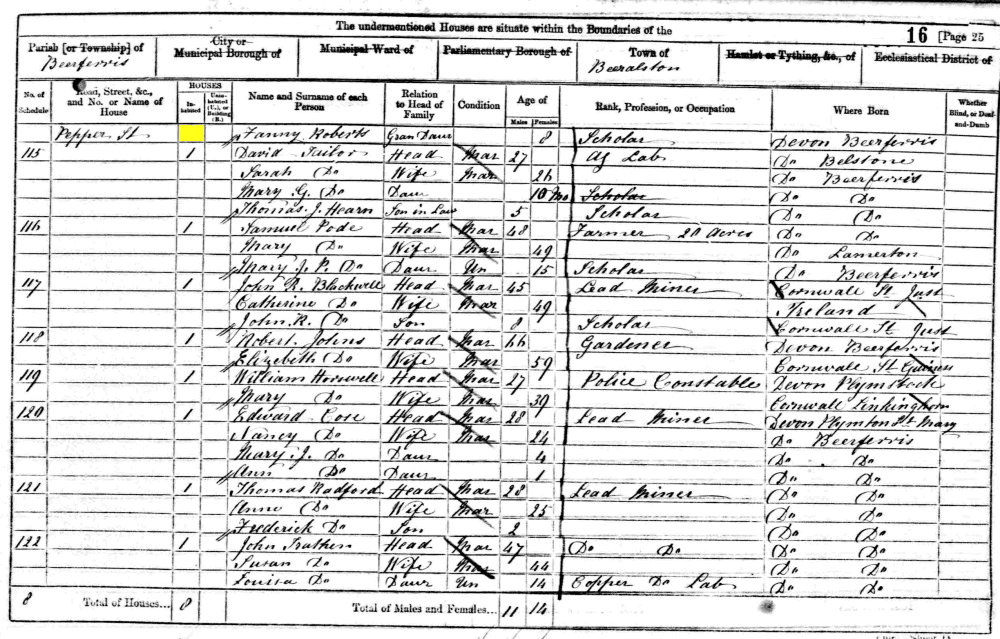 The undermentioned Houses are situate within the Boundaries of the
16 [Page 25
Parish [or Township] of Beerferris City or Municipal Borough of Municipal Ward of Parliamentary Borough of Town of Beeralston Hamlet or Tything, &c., of Ecclesiastical District of
No. of Schedule Road, Street, &c., and No. or Name of House HOUSES Inhabited Uninhabited (U.), or Building (B.) Name and Surname of each Person Relation to Head of Family Condition Age of Males Females Rank, Profession, or Occupation Where Born Whether Blind, or Deaf-and-Dumb
Pepper St Fanny Roberts Gran Daur 8 Scholar Devon Beerferris
115 1 David Tailor Head Mar 27 Ag Lab Do Belstone
Sarah Do Wife Mar 26 Do Beerferris
Mary G. Do Daur 10 Mo Scholar Do Do
Thomas J. Hearn Son in Law 5 Scholar Do Do
116 1 Samuel Pode Head Mar 48 Farmer 20 Acres Do Do
Mary Do Wife Mar 49 Do Lamerton
Mary J. P. Do Daur Un 15 Scholar Do Beerferris
117 1 John R. Blackwell Head Mar 45 Lead Miner Cornwall St Just
Catherine Do Wife Mar 49 Ireland
John R. Do Son 8 Scholar Cornwall St Just
118 1 Robert Johns Head Mar 66 Gardener Devon Beerferris
Elizabeth Do Wife Mar 59 Cornwall St
119 1 William Horswell Head Mar 27 Police Constable Devon Plymstock
Mary Do Wife Mar 39 Cornwall Linkinghorn
120 1 Edward Cose Head Mar 28 Lead Miner Devon Plymton St Mary
Nancy Do Wife Mar 24 Do Beerferris
Mary J. Do Daur 4 Do Do
Ann Do Daur 1 Do Do
121 1 Thomas Radford Head Mar 28 Lead Miner Do Do
Anne Do Wife Mar 25 Do Do
Frederick Do Son 2 Do Do
122 1 John Trathen Head Mar 47 Do Do Do Do
Susan Do Wife Mar 44 Do Do
Louisa Do Daur Un 14 Copper Do Lab Do Do
8 Total of Houses... 8 Total of Males and Females... 11 14